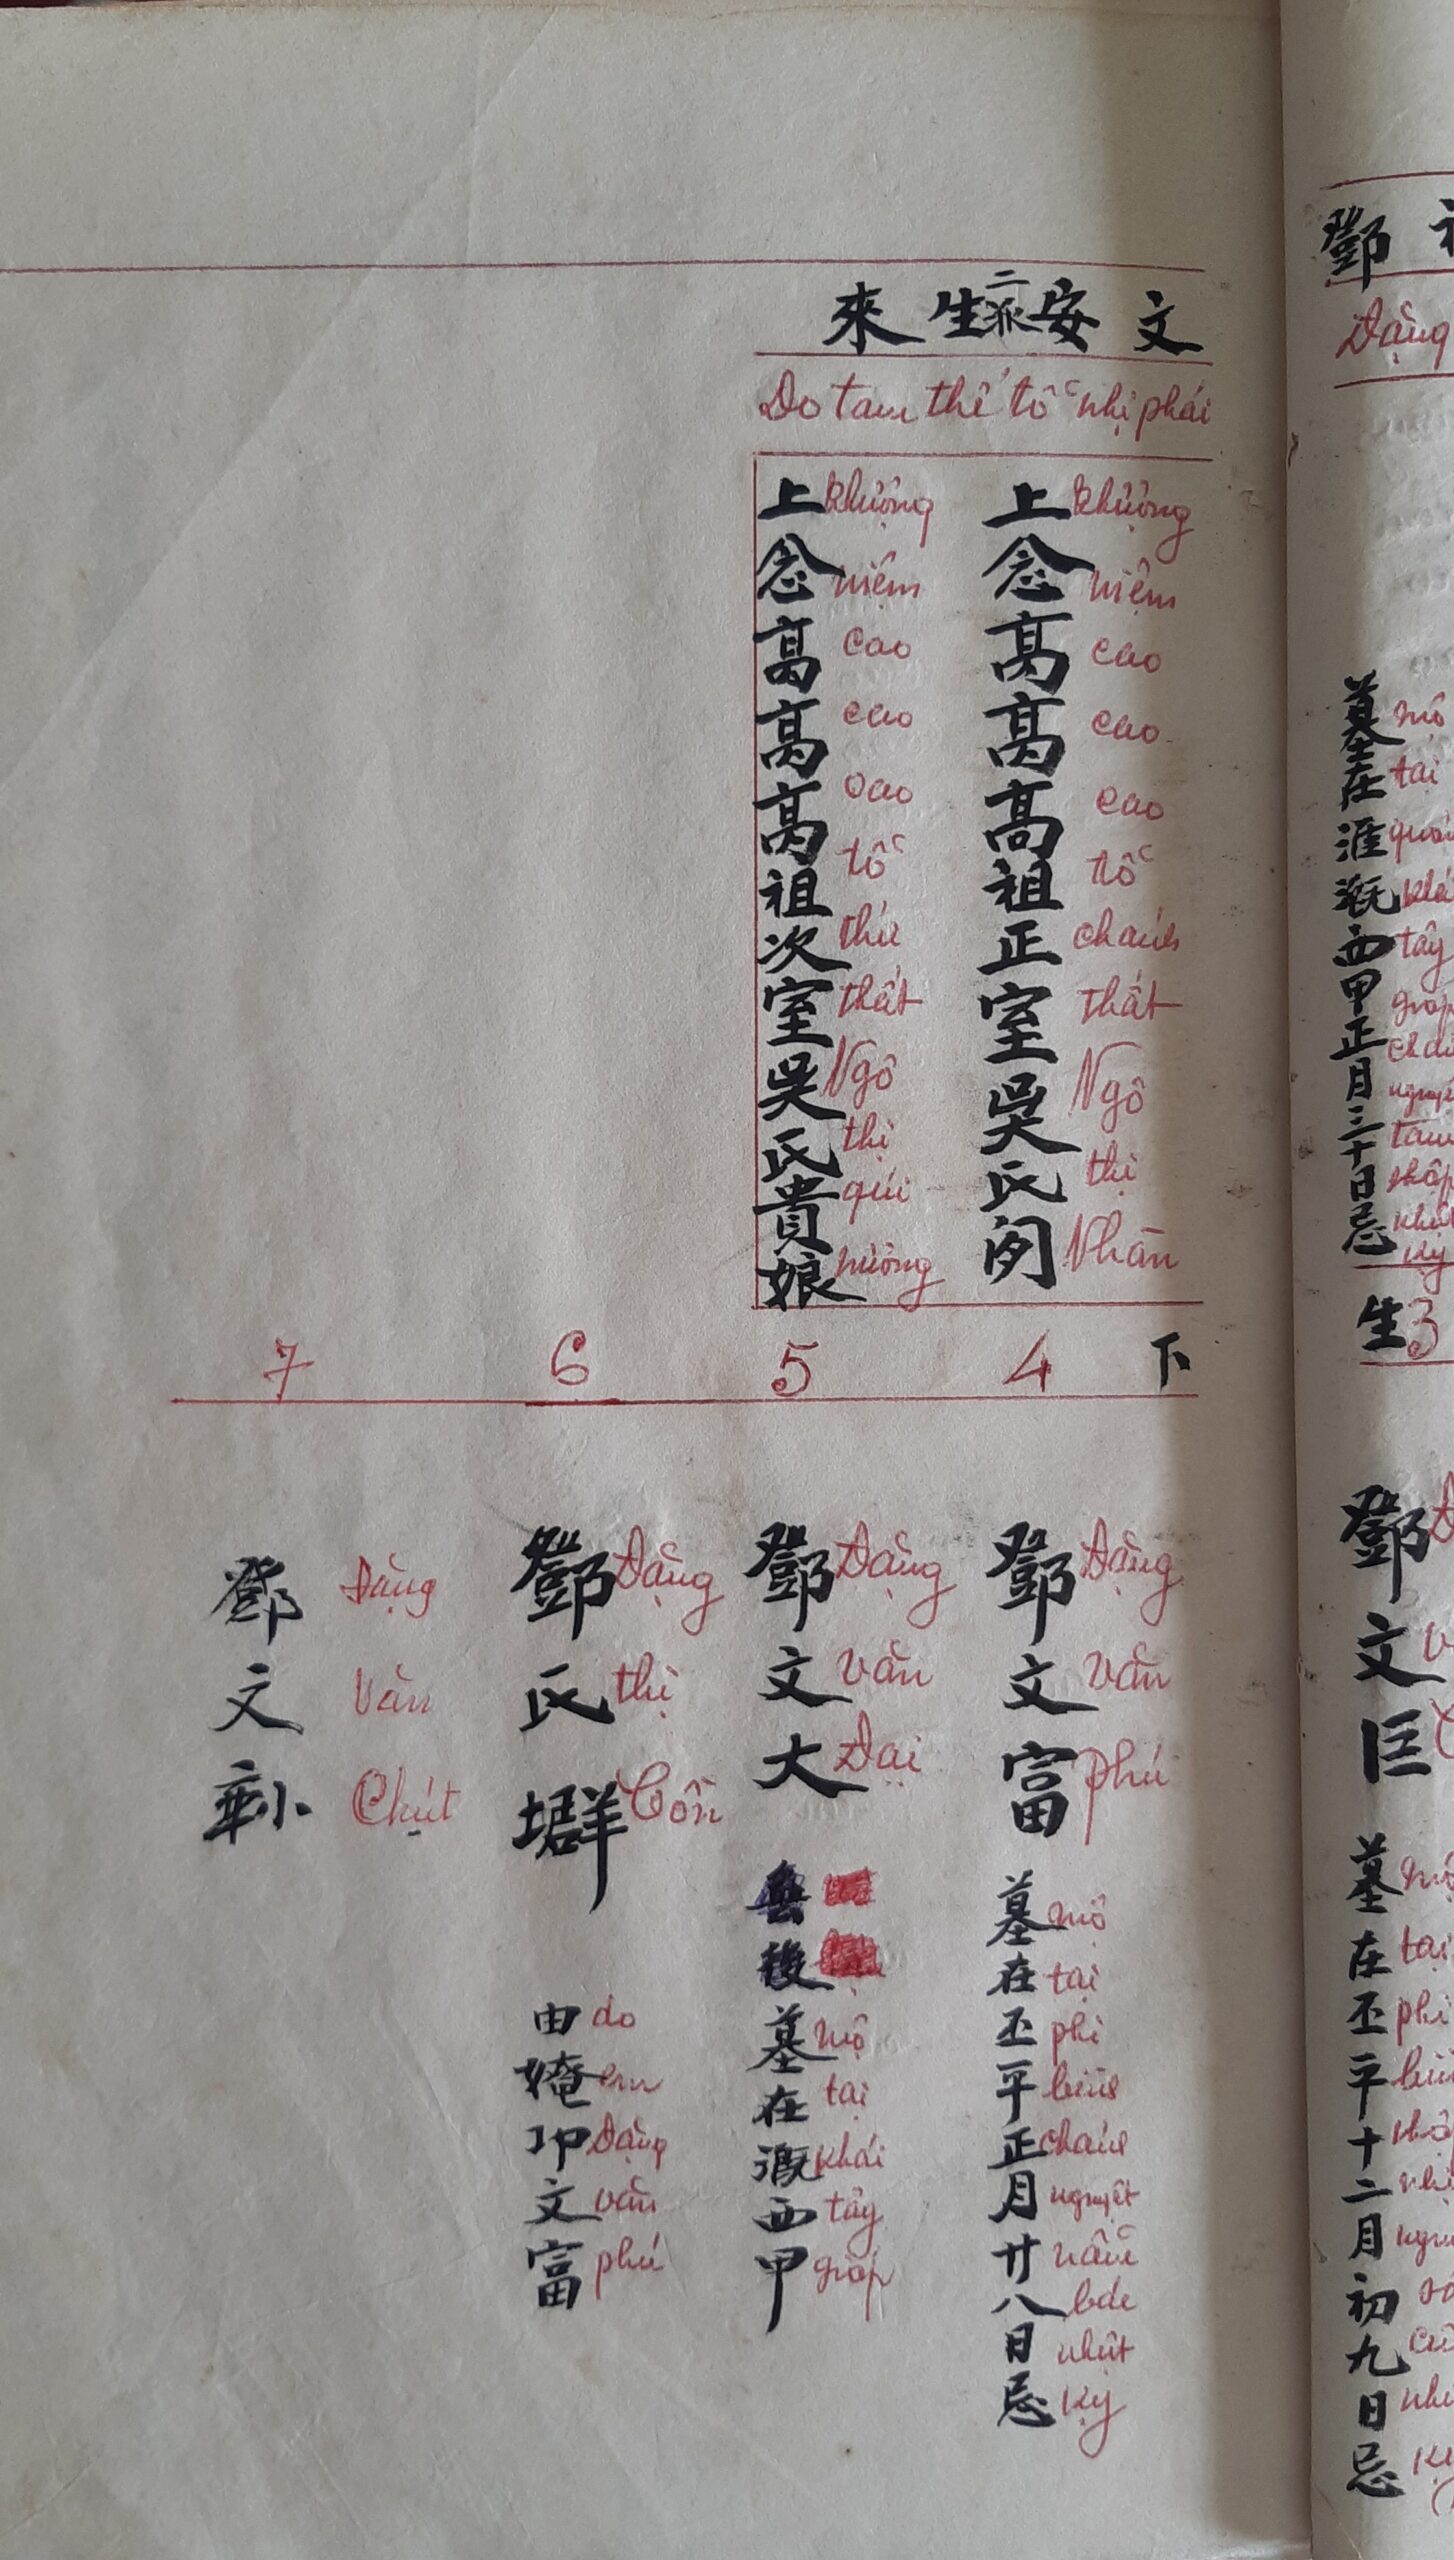 文安二派生來
Do tam thế tổ nhị phái
上念高高高祖正室吳氏闲
thượng niệm cao cao cao tổ chánh thất Ngô thị Nhàn
上念高高高祖次室吳氏貴娘
thượng niệm cao cao cao tổ thứ thất Ngô thị quí nương
下
4
鄧文富
Đặng văn phú
墓在丕平正月廿八日忌
mộ tại phi bình chánh nguyệt bát nhựt kỵ
5
鄧文大
Đặng văn Đại
無後
墓在溉西甲
mộ tại khái tây giáp
6
鄧氏
Đặng thị Cồn
由㛪邛文富
do em Đặng văn phú
7
鄧文
Đặng văn Chút
鄧
Đặng
墓在涯溉西甲正月三十日忌
mộ tại
tây
生 3
鄧文巨
墓在丕平十二月初九日忌
mộ tại phi